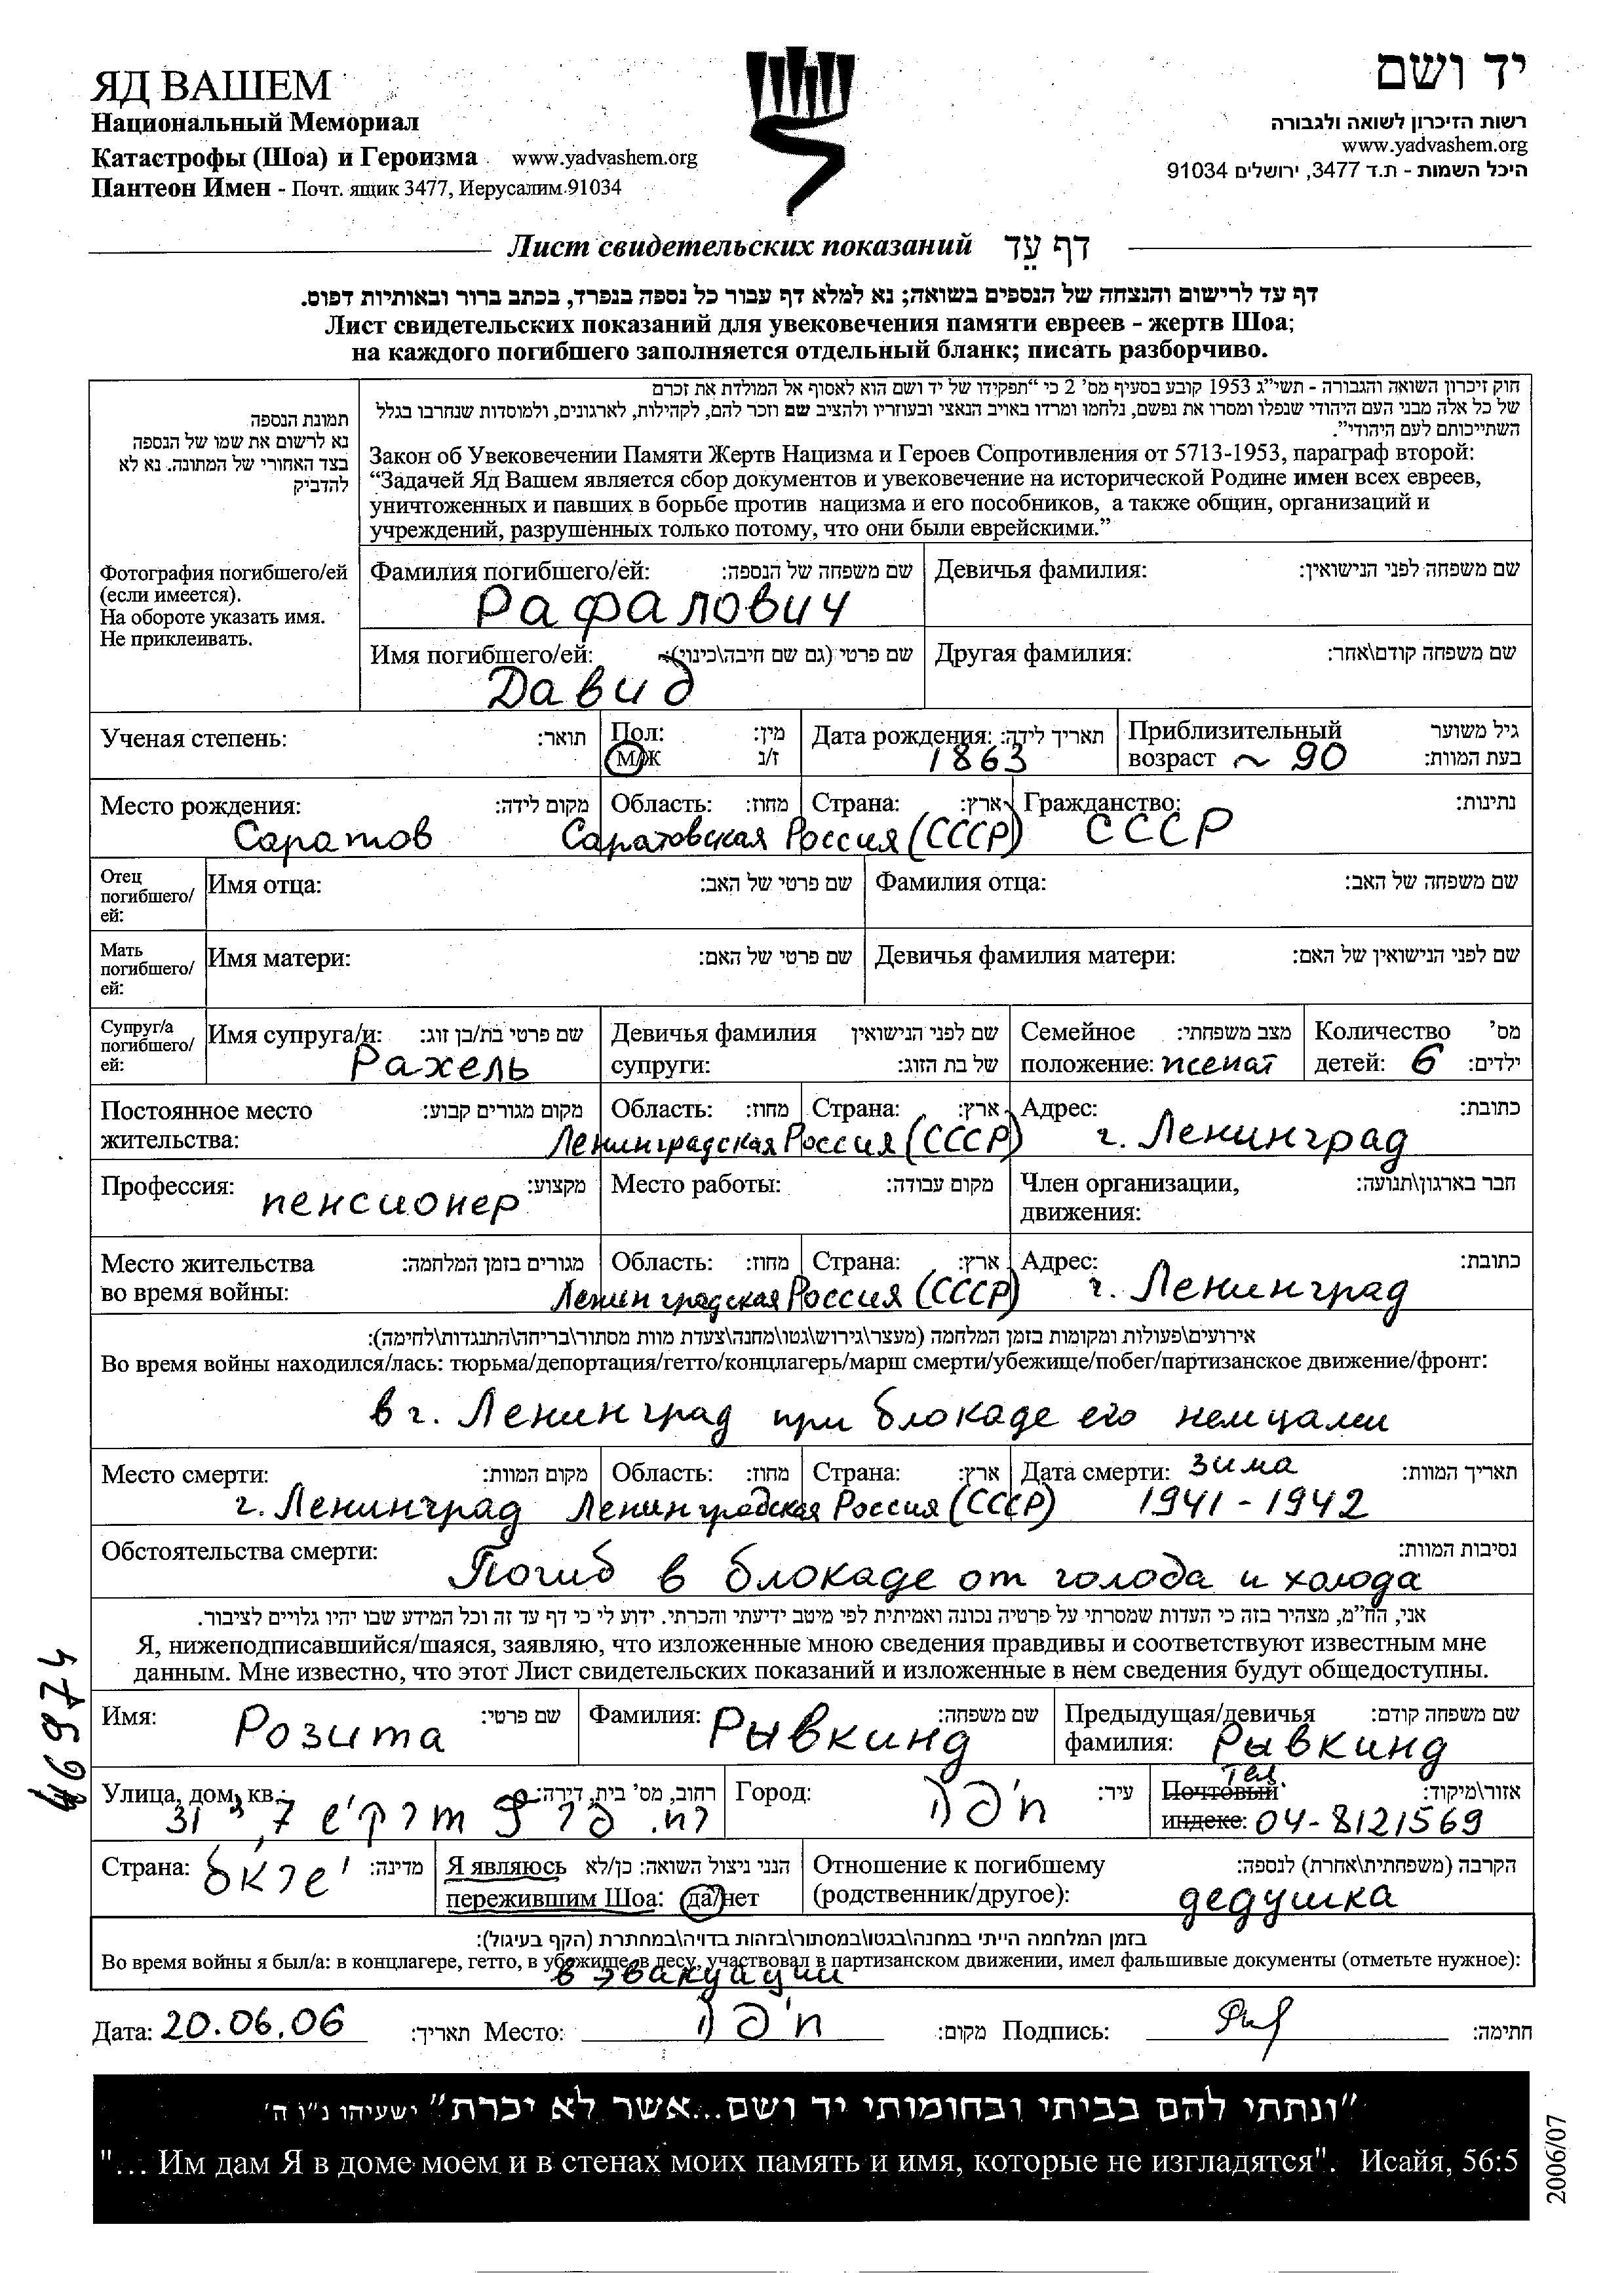 ЯД ВАШЕМ
Национальный Мемориал
Катастрофы (Шоа) и Героизма www.yadvashem.org
Пантеон Имен - Почт. ящик 3477, Иерусалим 91034
יד ושם
רשות הזיכרון לשואה ולגבורה
www.yadvashem.org
היכל השמות - ת.ד 3477, ירושלים 91034
Лист свидетельских показаний דף עֵד
דף עד לרישום והנצחה של הנספים בשואה; נא למלא דף עבור כל נספה בנפרד, בכתב ברור ובאותיות דפוס.
Лист свидетельских показаний для увековечения памяти евреев - жертв Шоа;
на каждого погибшего заполняется отдельный бланк; писать разборчиво.
תמונת הנספה
נא לרשום את שמו של הנספה
בצד האחורי של התמונה. נא לא
להדביק
Фотография погибшего/ей
(если имеется).
На обороте указать имя.
Не приклеивать.
חוק זיכרון השואה והגבורה - תשי"ג 1953 קובע בסעיף מס' 2 כי "תפקידו של יד ושם הוא לאסוף אל המולדת את זכרם
של כל אלה מבני העם היהודי שנפלו ומסרו את נפשם, נלחמו ומרדו באויב הנאצי ובעוזריו ולהציב שם וזכר להם, לקהילות, לארגונים, ולמוסדות שנחרבו בגלל
השתייכותם לעם היהודי".
Закон об Увековечении Памяти Жертв Нацизма и Героев Сопротивления от 5713-1953, параграф второй:
“Задачей Яд Вашем является сбор документов и увековечение на исторической Родине имен всех евреев,
уничтоженных и павших в борьбе против нацизма и его пособников, а также общин, организаций и
учреждений, разрушенных только потому, что они были еврейскими.”
Фамилия погибшего/ей: שם משפחה של הנספה: Девичья фамилия: שם משפחה לפני הנישואין:
Рафалович
Имя погибшего/ей: שם פרטי (גם שם חיבה\כינוי): Другая фамилия: שם משפחה קודם\אחר:
Давид
Ученая степень: תואר: Пол: מין: Дата рождения: תאריך לידה: Приблизительный גיל משוער
М/Ж ז/נ 1863 возраст ~ 90 בעת המוות:
Место рождения: מקום לידה: Область: מחוז: Страна: ארץ: Гражданство: נתינות:
Саратов Саратовская Россия (СССР) СССР
Отец погибшего/ей: Имя отца: שם פרטי של האב: Фамилия отца: שם משפחה של האב:
Мать погибшего/ей: Имя матери: שם פרטי של האם: Девичья фамилия матери: שם לפני הנישואין של האם:
Супруг/а погибшего/ей: Имя супруга/и: שם פרטי בת/בן זוג: Девичья фамилия שם לפני הנישואין Семейное מצב משפחתי: Количество מס'
Рахель супруги: של בת הזוג: положение: женат детей: 6 ילדים:
Постоянное место מקום מגורים קבוע: Область: מחוז: Страна: ארץ: Адрес: כתובת:
жительства: Ленинградская Россия (СССР) г. Ленинград
Профессия: пенсионер מקצוע: Место работы: מקום עבודה: Член организации, חבר בארגון\תנועה:
движения:
Место жительства מגורים בזמן המלחמה: Область: מחוז: Страна: ארץ: Адрес: כתובת:
во время войны: Ленинградская Россия (СССР) г. Ленинград
אירועים\פעולות ומקומות בזמן המלחמה (מעצר\גירוש\גטו\מחנה\צעדת מוות מסתור\בריחה\התנגדות\לחימה):
Во время войны находился/лась: тюрьма/депортация/гетто/концлагерь/марш смерти/убежище/побег/партизанское движение/фронт:
в г. Ленинград при блокаде его немцами
Место смерти: מקום המוות: Область: מחוז: Страна: ארץ: Дата смерти: зима תאריך המוות:
г. Ленинград Ленинградская Россия (СССР) 1941-1942
Обстоятельства смерти: נסיבות המוות:
Погиб в блокаде от голода и холода
אני, הח"מ, מצהיר בזה כי העדות שמסרתי על פרטיה נכונה ואמיתית לפי מיטב ידיעתי והכרתי. ידוע לי כי דף עד זה וכל המידע שבו יהיו גלויים לציבור.
Я, нижеподписавшийся/шаяся, заявляю, что изложенные мною сведения правдивы и соответствуют известным мне
данным. Мне известно, что этот Лист свидетельских показаний и изложенные в нем сведения будут общедоступны.
Имя: Розита שם פרטי: Фамилия: Рывкинд שם משפחה: Предыдущая/девичья שם משפחה קודם:
фамилия: Рывкинд
Улица, дом, кв.: רחוב, מס' בית, דירה: Город: חיפה עיר: Почтовый Тел. אזור\מיקוד:
индекс: 04-8121569
Страна: ישראל מדינה: Я являюсь הנני ניצול השואה: כן/לא Отношение к погибшему הקרבה (משפחתית\אחרת) לנספה:
пережившим Шоа: да/нет (родственник/другое): дедушка
בזמן המלחמה הייתי במחנה\בגטו\במסתור\בזהות בדויה\במחתרת (הקף בעיגול):
Во время войны я был/а: в концлагере, гетто, в убежище, в лесу, участвовал в партизанском движении, имел фальшивые документы (отметьте нужное):
в эвакуации
Дата: 20.06.06 תאריך: Место: חיפה מקום: Подпись: חתימה:
"ונתתי להם בביתי ובחומותי יד ושם...אשר לא יכרת" ישעיהו נ"ו ה'
"... Им дам Я в доме моем и в стенах моих память и имя, которые не изгладятся". Исайя, 56:5
2006/07